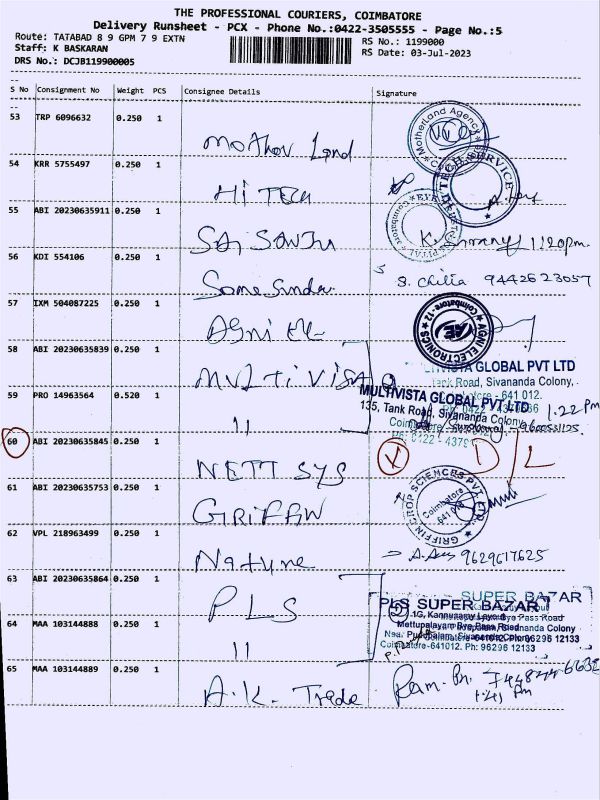 THE PROFESSIONAL COURIERS, COIMBATORE
Delivery Runsheet - PCX - Phone No.:0422-3505555 - Page No.:5
Route: TATABAD 8 9 GPM 7 9 EXTN
RS No.: 1199000
Staff: K BASKARAN
RS Date: 03-Jul-2023
DRS No.: DCJB119900005
S No Consignment No Weight PCS Consignee Details Signature
53 TRP 6096632 0.250 1
MotherLand Agency
54 KRR 5755497 0.250 1
HI TECH
HI TECH SERVICE
55 ABI 20230635911 0.250 1
SAI
Coimbatore
1:20pm.
56 KDI 554106 0.250 1
S. Chitra 9442623057
57 IXM 504087225 0.250 1
Agni
AGNI ELECTRONICS
Coimbatore-12
58 ABI 20230635839 0.250 1
MULTI VISTA
MULTIVISTA GLOBAL PVT LTD
Tank Road, Sivananda Colony,
59 PRO 14963564 0.520 1
11
MULTIVISTA GLOBAL PVT LTD
135, Tank Road, Sivananda Colony
1.22 pm
60 ABI 20230635845 0.250 1
NETT SYS
X D/L
61 ABI 20230635753 0.250 1
GRIFFIN
GRIFFIN CROP SCIENCES PVT LTD
Coimbatore
-641 012
62 VPL 218963499 0.250 1
Nature
9629617625
63 ABI 20230635864 0.250 1
PLS
SUPER BAZAR
PLS SUPER BAZAR
64 MAA 103144888 0.250 1
11
1G, Kannusamy Layout
Mettupalayam Bye Pass Road
Coimbatore-641012. Ph: 96296 12133
65 MAA 103144889 0.250 1
A.K. Trade
1:41 Pm